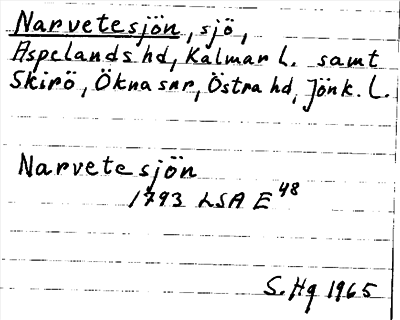 Narvetesjön, sjö,
Aspelands hd, Kalmar l. samt
Skirö, Ökna snr, Östra hd, Jönk. l.
Narvetesjön
1793 LSA E48
S. Hg 1965